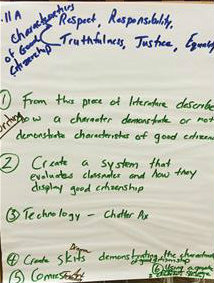 .11A
Characteristics
of Good
Citizenship
Respect, Responsibility,
Truthfulness, Justice, Equality
① From this piece of literature describe
how a character demonstrate or not
demonstrate characteristics of good citizen
② Create a system that
evaluates classmates and how they
display good citizenship
③ Technology – Chatter Px
④ Create skits demonstrating the characteristics
⑤ Comic Strip
⑥